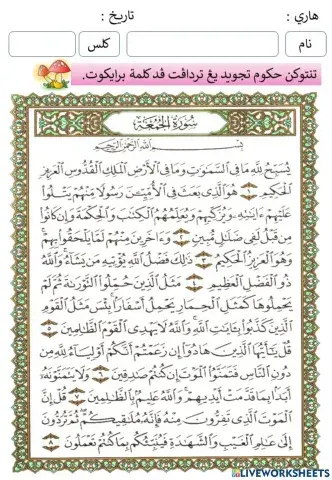 هاري :
تاريخ :
نام
كلس
تنتوكن حكوم تجويد يڠ تردافت ڤد كلمة برايكوت.
سُورَةُ الجُمُعَةِ
بِسْمِ اللَّهِ الرَّحْمَٰنِ الرَّحِيمِ
يُسَبِّحُ لِلَّهِ مَا فِي السَّمَٰوَٰتِ وَمَا فِي الْأَرْضِ الْمَلِكِ الْقُدُّوسِ الْعَزِيزِ
الْحَكِيمِ ١ هُوَ الَّذِي بَعَثَ فِي الْأُمِّيِّينَ رَسُولًا مِنْهُمْ يَتْلُوا
عَلَيْهِمْ ءَايَٰتِهِ وَيُزَكِّيهِمْ وَيُعَلِّمُهُمُ الْكِتَٰبَ وَالْحِكْمَةَ وَإِن كَانُوا
مِن قَبْلُ لَفِي ضَلَٰلٍ مُّبِينٍ ٢ وَءَاخَرِينَ مِنْهُمْ لَمَّا يَلْحَقُوا بِهِمْ
وَهُوَ الْعَزِيزُ الْحَكِيمُ ٣ ذَٰلِكَ فَضْلُ اللَّهِ يُؤْتِيهِ مَن يَشَاءُ وَاللَّهُ
ذُو الْفَضْلِ الْعَظِيمِ ٤ مَثَلُ الَّذِينَ حُمِّلُوا التَّوْرَىٰةَ ثُمَّ لَمْ
يَحْمِلُوهَا كَمَثَلِ الْحِمَارِ يَحْمِلُ أَسْفَارًا بِئْسَ مَثَلُ الْقَوْمِ
الَّذِينَ كَذَّبُوا بِـَٔايَٰتِ اللَّهِ وَاللَّهُ لَا يَهْدِي الْقَوْمَ الظَّٰلِمِينَ ٥
قُلْ يَٰٓأَيُّهَا الَّذِينَ هَادُوا إِن زَعَمْتُمْ أَنَّكُمْ أَوْلِيَاءُ لِلَّهِ مِن
دُونِ النَّاسِ فَتَمَنَّوُا الْمَوْتَ إِن كُنتُمْ صَٰدِقِينَ ٦ وَلَا يَتَمَنَّوْنَهُ
أَبَدًا بِمَا قَدَّمَتْ أَيْدِيهِمْ وَاللَّهُ عَلِيمٌ بِالظَّٰلِمِينَ ٧ قُلْ إِنَّ
الْمَوْتَ الَّذِي تَفِرُّونَ مِنْهُ فَإِنَّهُ مُلَٰقِيكُمْ ثُمَّ تُرَدُّونَ
إِلَىٰ عَٰلِمِ الْغَيْبِ وَالشَّهَٰدَةِ فَيُنَبِّئُكُم بِمَا كُنتُمْ تَعْمَلُونَ ٨
LIVEWORKSHEETS